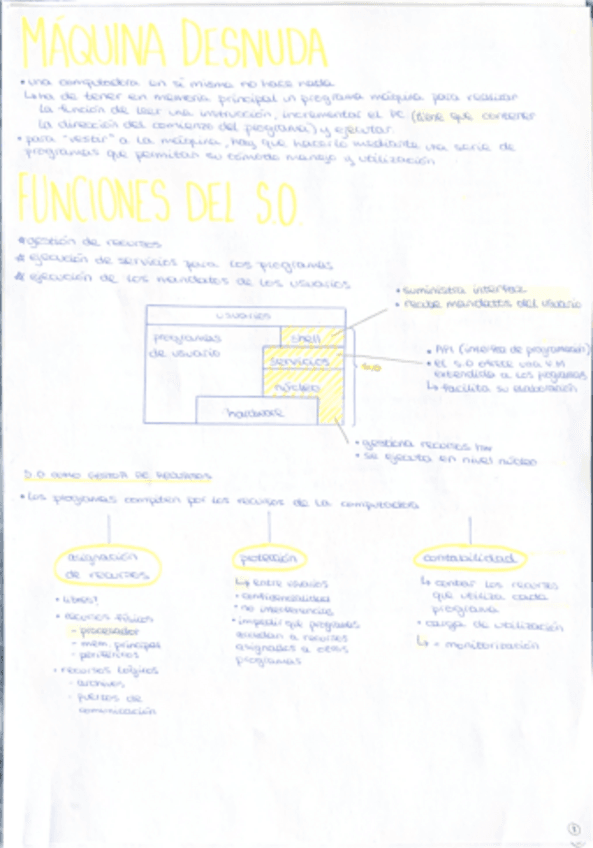 MÁQUINA DESNUDA
• una computadora en sí misma no hace nada
↳ ha de tener en memoria principal un programa máquina para realizar
la función de leer una instrucción, incrementar el PC (tiene que contener
la dirección del comienzo del programa) y ejecutar.
• para "vestir" a la máquina, hay que hacerlo mediante una serie de
programas que permitan su cómodo manejo y utilización
FUNCIONES DEL S.O.
* gestión de recursos
* ejecución de servicios para los programas
* ejecución de los mandatos de los usuarios
usuarios
programas
de usuario
shell
servicios
núcleo
hardware
S.O
• suministra interfaz
• recibe mandatos del usuario
• API (interfaz de programación)
• El S.O ofrece una V.M
extendida a los programas
↳ facilita su elaboración
• gestiona recursos hw
• se ejecuta en nivel núcleo
S.O COMO GESTOR DE RECURSOS
• Los programas compiten por los recursos de la computadora
asignación
de recursos
• libres!
• recursos físicos
- procesador
- mem. principal
- periféricos
• recursos lógicos
- archivos
- puertos de
comunicación
protección
↳ entre usuarios
• confidencialidad
• no interferencias
• impedir que programas
accedan a recursos
asignados a otros
programas
contabilidad
↳ contar los recursos
que utiliza cada
programa
• carga de utilización
↳ - monitorización
1